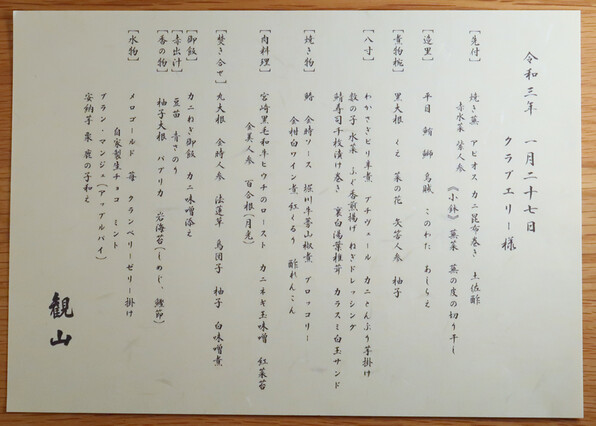 令和三年 一月二十七日
クラブエリー様
【先付】 焼き蕪 アピオス カニ昆布巻き 土佐酢
赤水菜 紫人参 《小鉢》 蕪菜 蕪の皮の切り干し
【造里】 平目 鮪 鰤 烏賊 このわた あしらえ
【煮物椀】 黒大根 くえ 菜の花 矢筈人参 柚子
【八寸】 わかさぎピリ辛煮 プチヴェール カニとんぶり芋掛け
数の子 水菜 ふぐ香煎揚げ ねぎドレッシング
鯖寿司千枚漬け巻き 裏白湯葉椎茸 カラスミ白玉サンド
【焼き物】 鰆 金時ソース 堀川牛蒡山椒煮 ブロッコリー
金柑白ワイン煮 紅くるり 酢れんこん
【肉料理】 宮崎黒毛和牛ヒウチのロースト カニネギ玉味噌 紅菜苔
金美人参 百合根(月光)
【焚き合せ】 丸大根 金時人参 法蓮草 鳥団子 柚子 白味噌煮
【御飯】 カニねぎ御飯 カニ味噌添え
【赤出汁】 豆苗 青さのり
【香の物】 柚子大根 パプリカ 岩海苔(しめじ、鰹節)
【水物】 メロゴールド 苺 クランベリーゼリー掛け
自家製生チョコ ミント
ブラン・マンジェ(アップルパイ)
安納芋 栗 鹿の子和え
観山